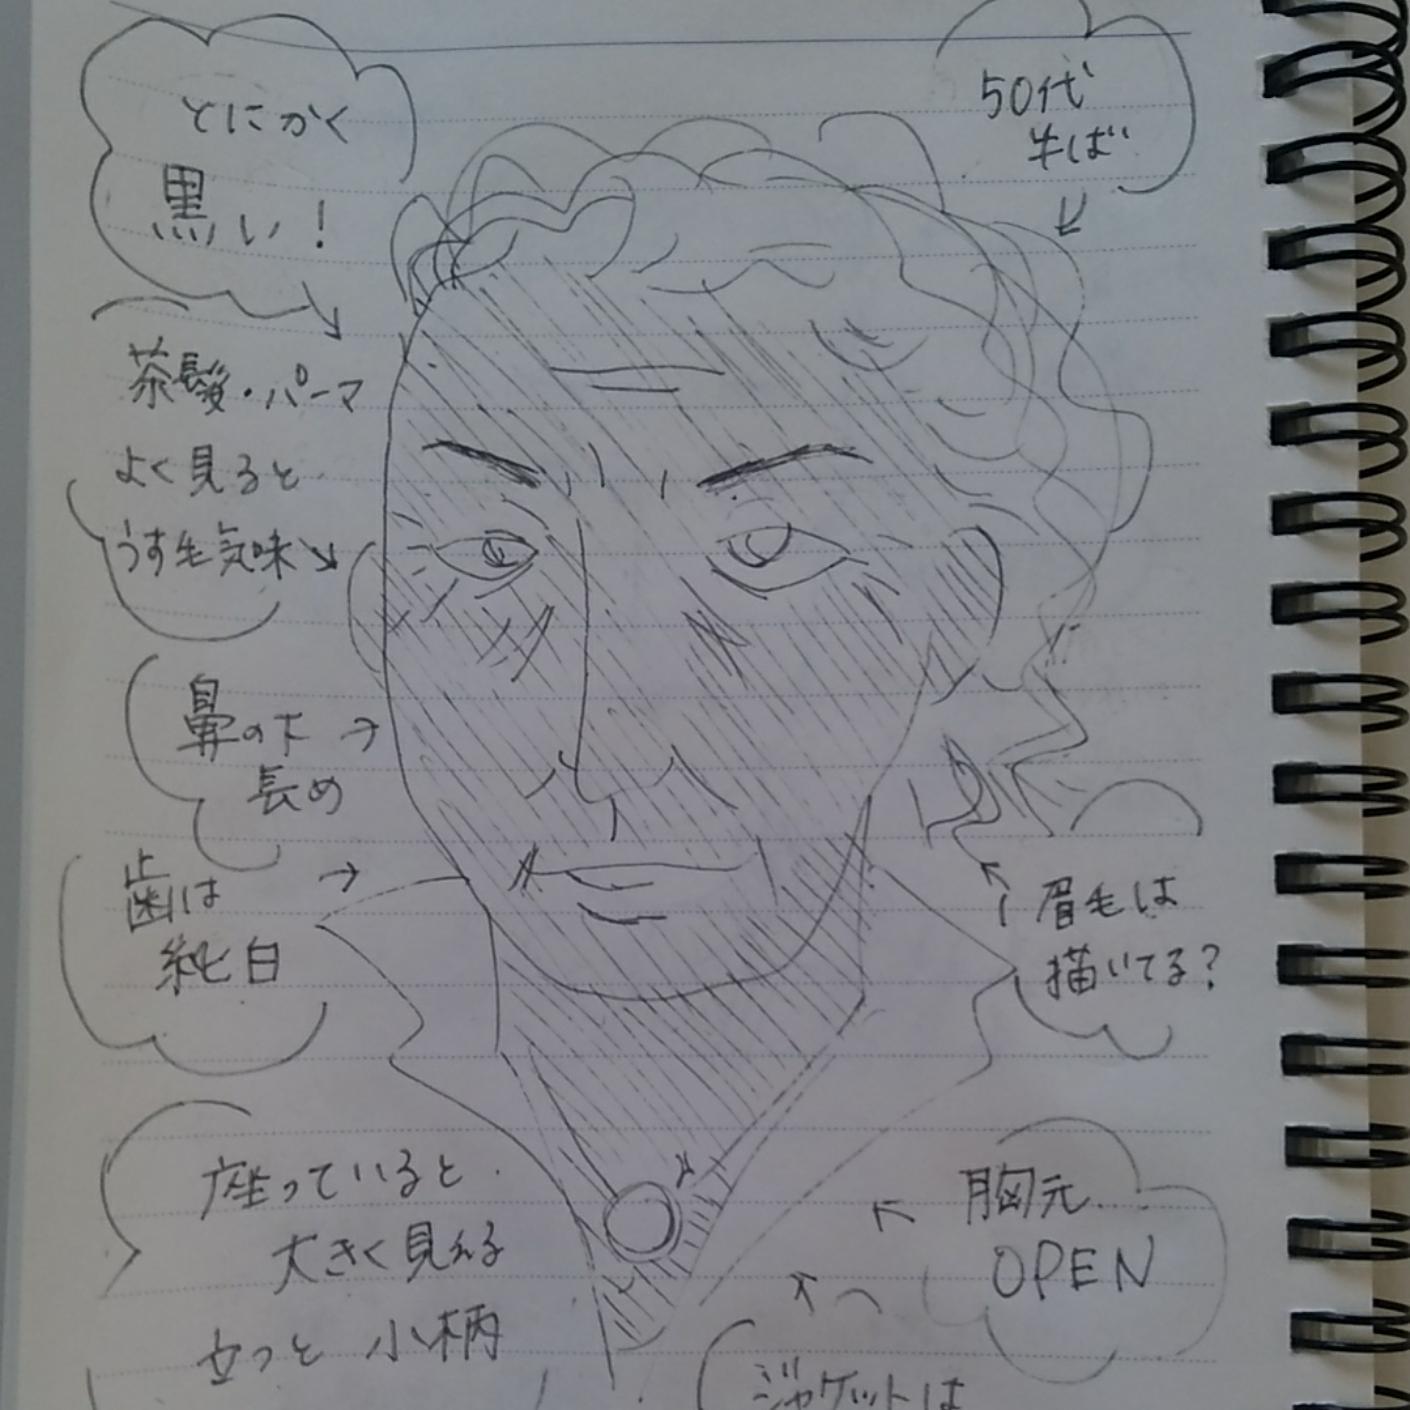 とにかく
黒い！
50代
半ば
茶髪・パーマ
よく見ると
うす毛気味
鼻の下
長め
歯は
純白
眉毛は
描いてる？
座っていると
大きく見える
立つと 小柄
胸元
OPEN
ジャケットは